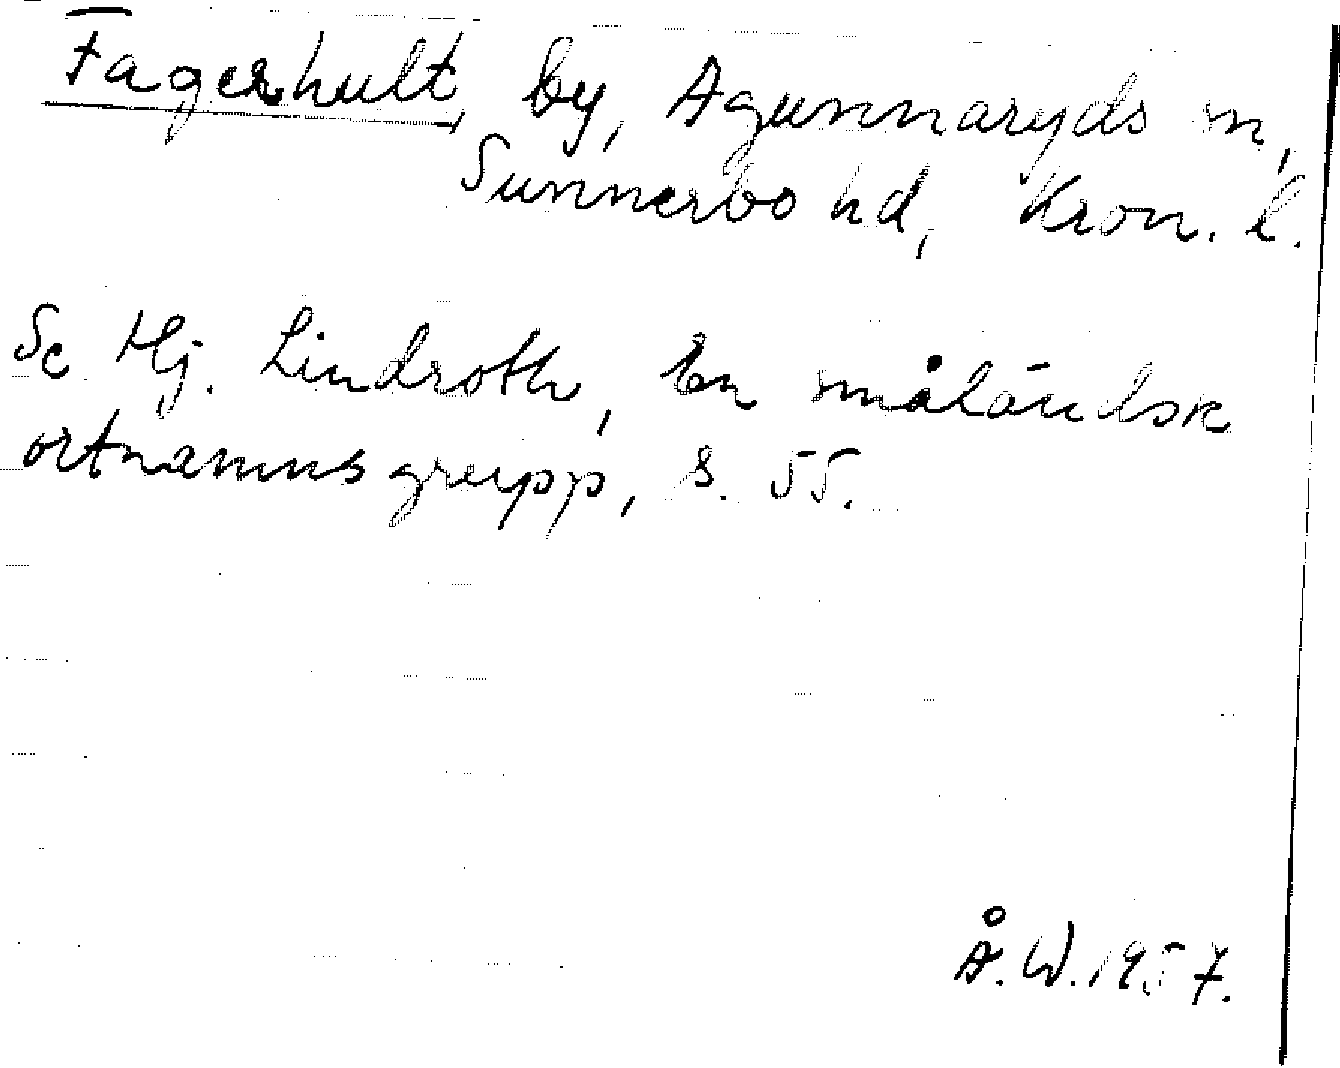 Fagerhult, by, Agunnaryds sn,
Sunnerbo hd, Kron. l.
Se Hj. Lindroth, En småländsk
ortnamnsgrupp, s. 55.
Å. W. 1957.